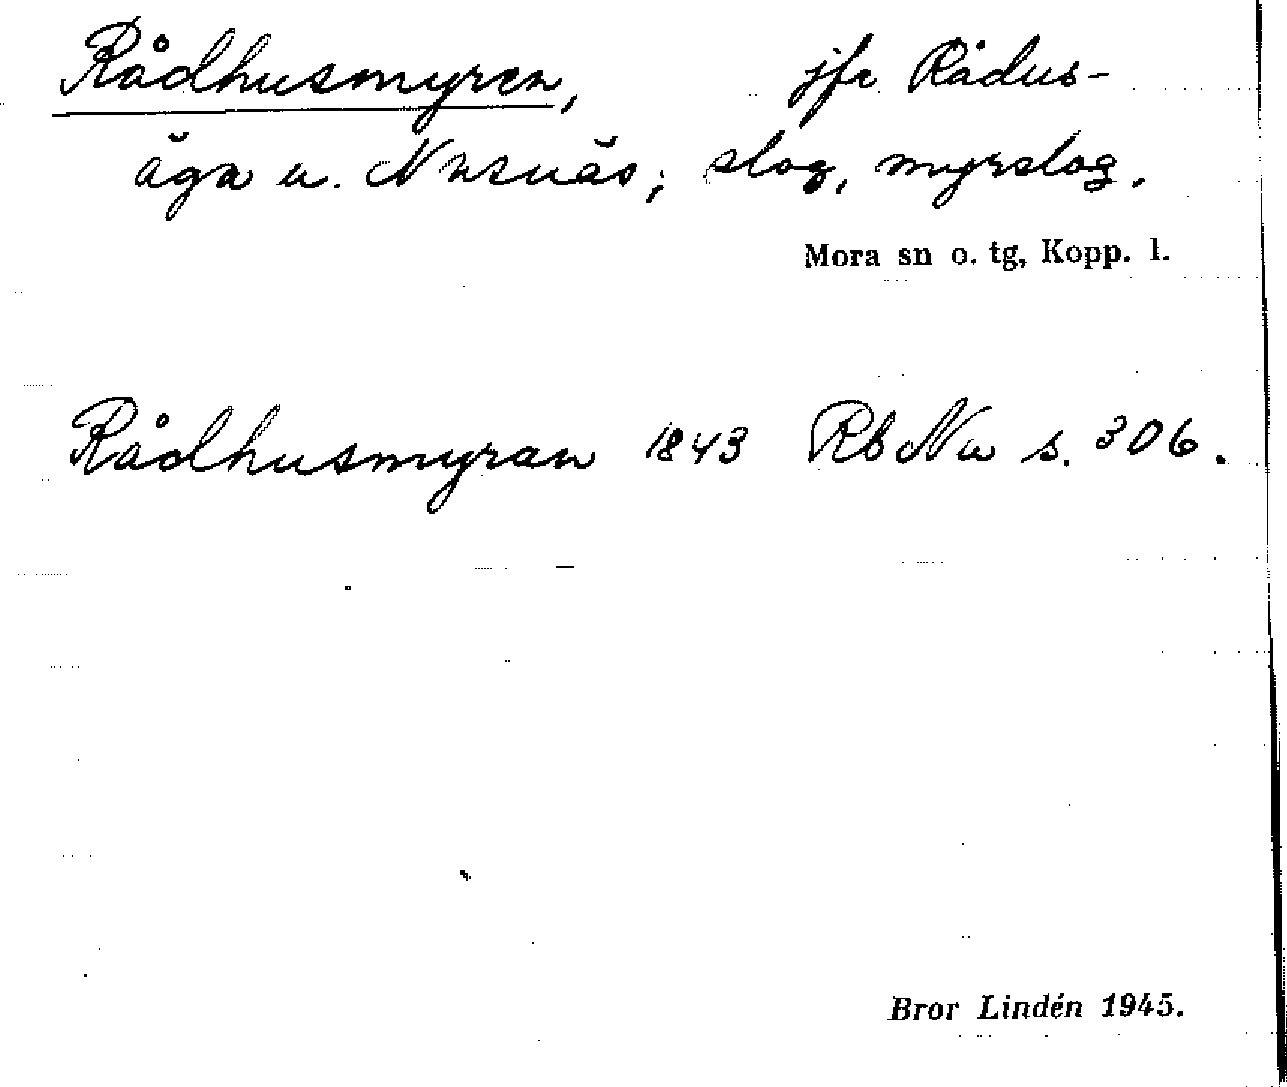 Rådhusmyren, jfr Rådus-
åga u. Nusnäs; slog, myrslog.
Mora sn o. tg, Kopp. l.
Rådhusmyran 1843 Rb Nu s. 306.
Bror Lindén 1945.